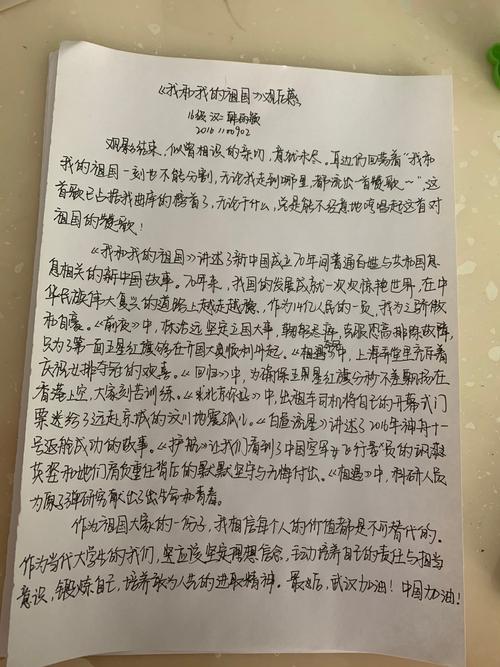 《我和我的祖国》观后感
16级 汉二 韩雨
2016 1100902
观影结束，似曾相识的亲切，意犹未尽。耳边仍回荡着“我和
我的祖国一刻也不能分割，无论我走到哪里，都流出一首赞歌～”，这
首歌已占据我曲库的榜首了，无论干什么，总是能不经意地哼唱起这首对
祖国的赞歌！
《我和我的祖国》讲述了新中国成立70年间普通百姓与共和国息
息相关的新中国故事。70年来，我国的发展成就一次次惊艳世界，在中
华民族伟大复兴的道路上越走越稳，作为14亿人民的一员，我为之骄傲
和自豪。《前夜》中，林治远坚定立国大事，克服恐高排除故障，
只为了第一面五星红旗能够在开国大典顺利升起。《夺冠》中，上海弄堂里充斥着
庆祝女排夺冠的欢喜。《回归》中，为确保五星红旗分秒不差飘扬在
香港上空，大家刻苦训练。《北京你好》中，出租车司机将自己的开幕式门
票送给了远赴京城的汶川地震孤儿。《白昼流星》讲述了2016年神舟十一
号返航成功的故事。《护航》让我们看到了中国空军女飞行员的飒爽
英姿和她们肩负重任背后的默默坚守与无悔付出。《相遇》中，科研人员
为原子弹研究献出了生命和青春。
作为祖国大家的一份子，我相信每个人的价值都是不可替代的。
作为当代大学生的我们，更应该坚定理想信念，主动培养自己的责任与担当
意识，锻炼自己，培养敢为人先的进取精神。最后，武汉加油！中国加油！